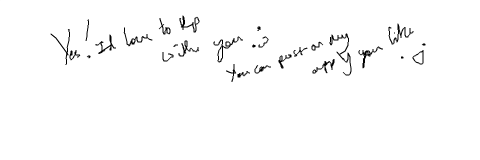 Yes! I'd love to rp
with you :)
You can post on any
app if you like
:)